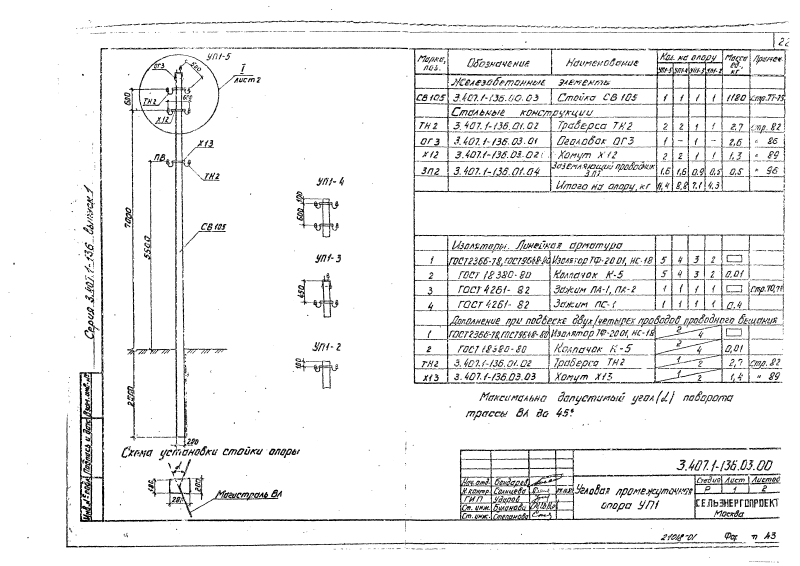 22
Серия 3.407.1-136 Выпуск 1
УП1-5
ОГ3
500
I
лист 2
600
ТН2
Х12
Х13
ПВ
ТН2
7000
5500
СВ105
2500
280
УП1-4
100
600
УП1-3
450
УП1-2
100
Схема установки стойки опоры
Магистраль ВЛ
Марка, поз. Обозначение Наименование Кол. на опору Масса ед., кг Примеч.
УП1-5 УП1-4 УП1-3 УП1-2
Железобетонные элементы
СВ105 3.407.1-136.00.03 Стойка СВ105 1 1 1 1 1180
Стальные конструкции
ТН2 3.407.1-136.01.02 Траверса ТН2 2 2 1 1 2,7 стр. 82
ОГ3 3.407.1-136.03.01 Оголовок ОГ3 1 - 1 - 2,6 " 86
Х12 3.407.1-136.03.02 Хомут Х12 2 2 1 1 1,3 " 89
ЗП2 3.407.1-136.01.04 Заземляющий проводник 1,6 1,6 0,9 0,5 0,5 " 96
Итого на опору, кг 8,8 7,1 4,3
Изоляторы. Линейная арматура
1 ГОСТ2366-78, ГОСТ9668-80 Изолятор ТФ-20.01, НС-18 5 4 3 2
2 ГОСТ 18380-80 Колпачок К-5 5 4 3 2 0,01
3 ГОСТ 4261-82 Зажим ПА-1, ПА-2 1 1 1 1
4 ГОСТ 4261-82 Зажим ПС-1 1 1 1 1 0,4
Дополнение при подвеске двух/четырех проводов проводного вещания
1 ГОСТ2366-78, ГОСТ9668-80 Изолятор ТФ-20.01, НС-18 2 4
2 ГОСТ 18380-80 Колпачок К-5 2 4 0,01
ТН2 3.407.1-136.01.02 Траверса ТН2 1 2 2,7 стр. 82
Х13 3.407.1-136.03.03 Хомут Х13 1 2 1,4 " 89
Максимально допустимый угол (α) поворота
трассы ВЛ до 45°
3.407.1-136.03.00
Нач. отд. Бондарев
Н. контр. Солнцева
ГИП Ударов
Ст. инж.
Ст. инж. Степанова
Угловая промежуточная
опора УП1
Стадия Лист Листов
Р 1 2
СЕЛЬЭНЕРГОПРОЕКТ
Москва
Инв. № подл. Подпись и дата Взам. инв. №
А3